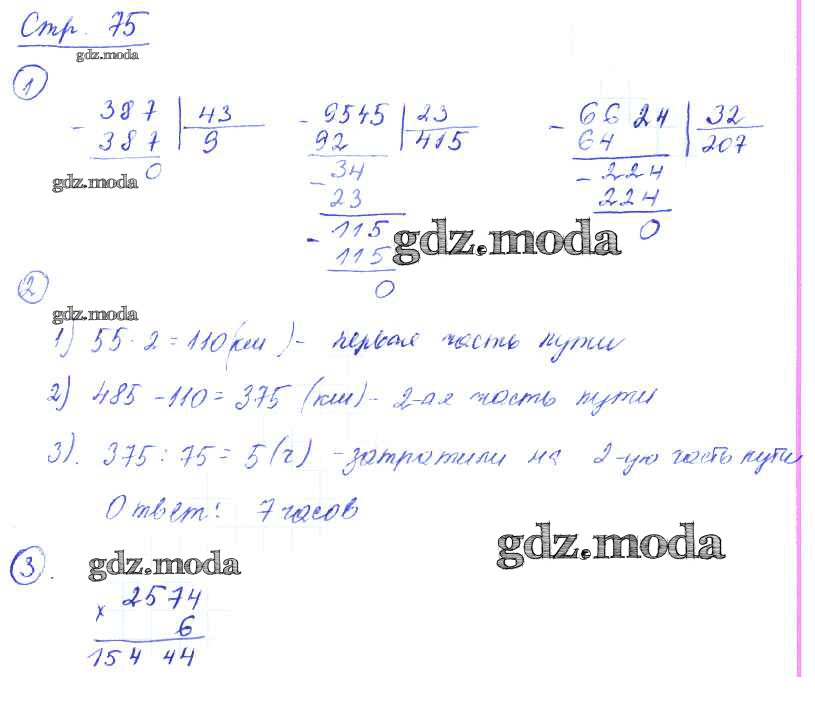 Стр. 75
gdz.moda
1
- 387 | 43
387 | 9
0
gdz.moda
- 9545 | 23
92 | 415
- 34
23
- 115
115
0
- 6624 | 32
64 | 207
- 224
224
0
gdz.moda
2
gdz.moda
1) 55 · 2 = 110 (км) - первая часть пути
2) 485 - 110 = 375 (км) - 2-ая часть пути
3). 375 : 75 = 5 (ч) - затратили на 2-ую часть пути
Ответ: 7 часов
gdz.moda
3.
gdz.moda
× 2574
6
154 44